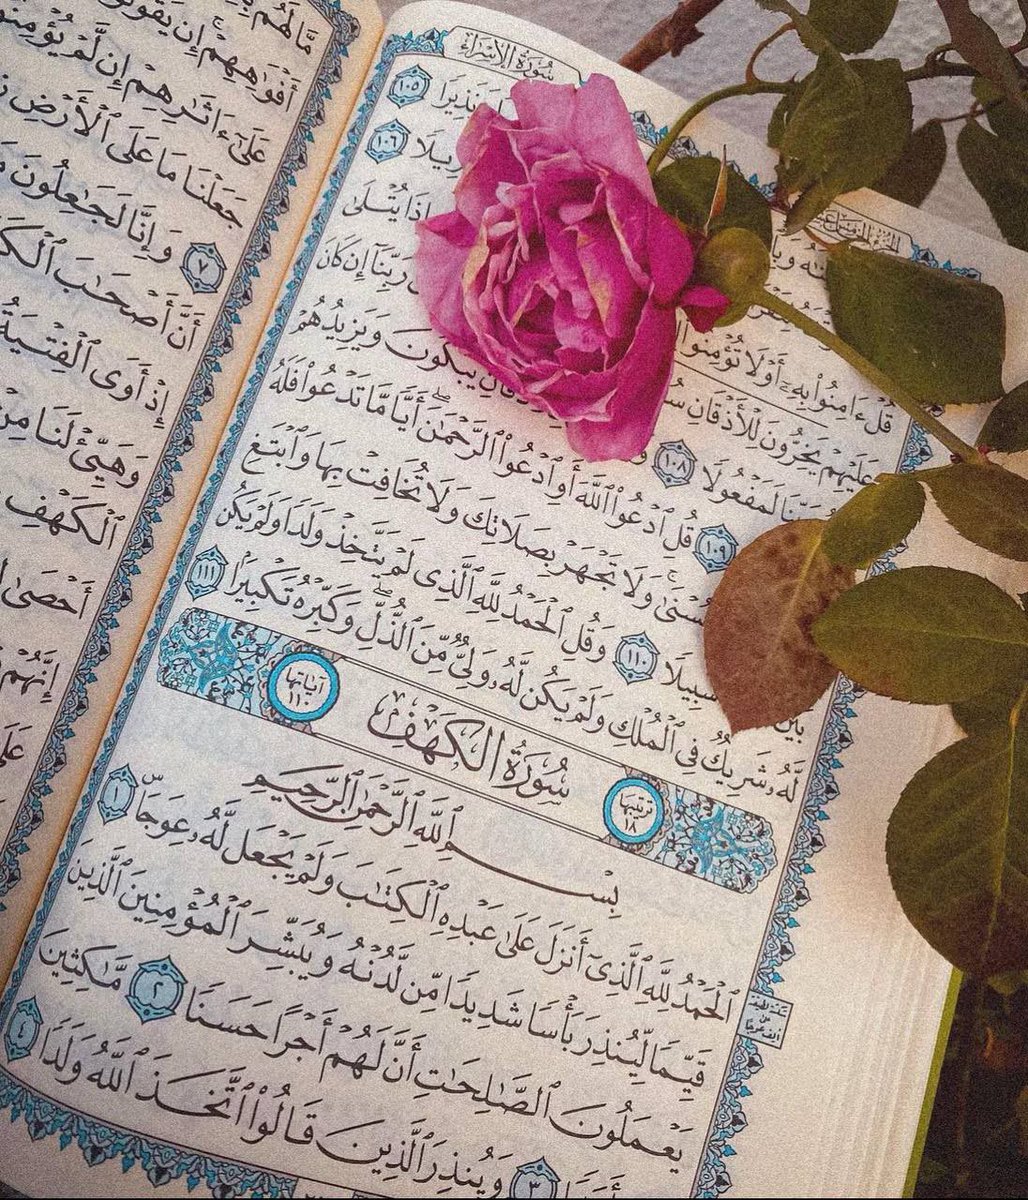 سُورَةُ الإِسْرَاءِ
وَنَذِيرًا ١٠٥
١٠٦
قُلْ ءَامِنُوا۟ بِهِۦٓ أَوْ لَا تُؤْمِنُوٓا۟ إِذَا يُتْلَىٰ
عَلَيْهِمْ يَخِرُّونَ لِلْأَذْقَانِ رَبِّنَآ إِن كَانَ
رَبِّنَا لَمَفْعُولًا ١٠٨ يَبْكُونَ وَيَزِيدُهُمْ
١٠٩ قُلِ ٱدْعُوا۟ ٱللَّهَ أَوِ ٱدْعُوا۟ ٱلرَّحْمَٰنَ ۖ أَيًّا مَّا تَدْعُوا۟ فَلَهُ
وَلَا تَجْهَرْ بِصَلَاتِكَ وَلَا تُخَافِتْ بِهَا وَٱبْتَغِ
بَيْنَ سَبِيلًا ١١٠ وَقُلِ ٱلْحَمْدُ لِلَّهِ ٱلَّذِى لَمْ يَتَّخِذْ وَلَدًا وَلَمْ يَكُن
لَّهُۥ شَرِيكٌ فِى ٱلْمُلْكِ وَلَمْ يَكُن لَّهُۥ وَلِىٌّ مِّنَ ٱلذُّلِّ ۖ وَكَبِّرْهُ تَكْبِيرًا ١١١
ترتيبها ١٨ سُورَةُ الكَهْفِ آياتها ١١٠
بِسْمِ ٱللَّهِ ٱلرَّحْمَٰنِ ٱلرَّحِيمِ
ٱلْحَمْدُ لِلَّهِ ٱلَّذِىٓ أَنزَلَ عَلَىٰ عَبْدِهِ ٱلْكِتَٰبَ وَلَمْ يَجْعَل لَّهُۥ عِوَجَاۜ ١
قَيِّمًا لِّيُنذِرَ بَأْسًا شَدِيدًا مِّن لَّدُنْهُ وَيُبَشِّرَ ٱلْمُؤْمِنِينَ ٱلَّذِينَ
يَعْمَلُونَ ٱلصَّٰلِحَٰتِ أَنَّ لَهُمْ أَجْرًا حَسَنًا ٢ مَّٰكِثِينَ
٣ وَيُنذِرَ ٱلَّذِينَ قَالُوا۟ ٱتَّخَذَ ٱللَّهُ وَلَدًا ٤
مَّا لَهُم
أَفْوَٰهِهِمْ ۚ إِن يَقُولُونَ
عَلَىٰٓ ءَاثَٰرِهِمْ إِن لَّمْ يُؤْمِنُوا۟
جَعَلْنَا مَا عَلَى ٱلْأَرْضِ
٧ وَإِنَّا لَجَٰعِلُونَ
أَنَّ أَصْحَٰبَ
إِذْ أَوَى ٱلْفِتْيَةُ
وَهَيِّئْ لَنَا مِنْ
ٱلْكَهْفِ
أَحْصَىٰ
إِنَّهُمْ
عَلَىٰ